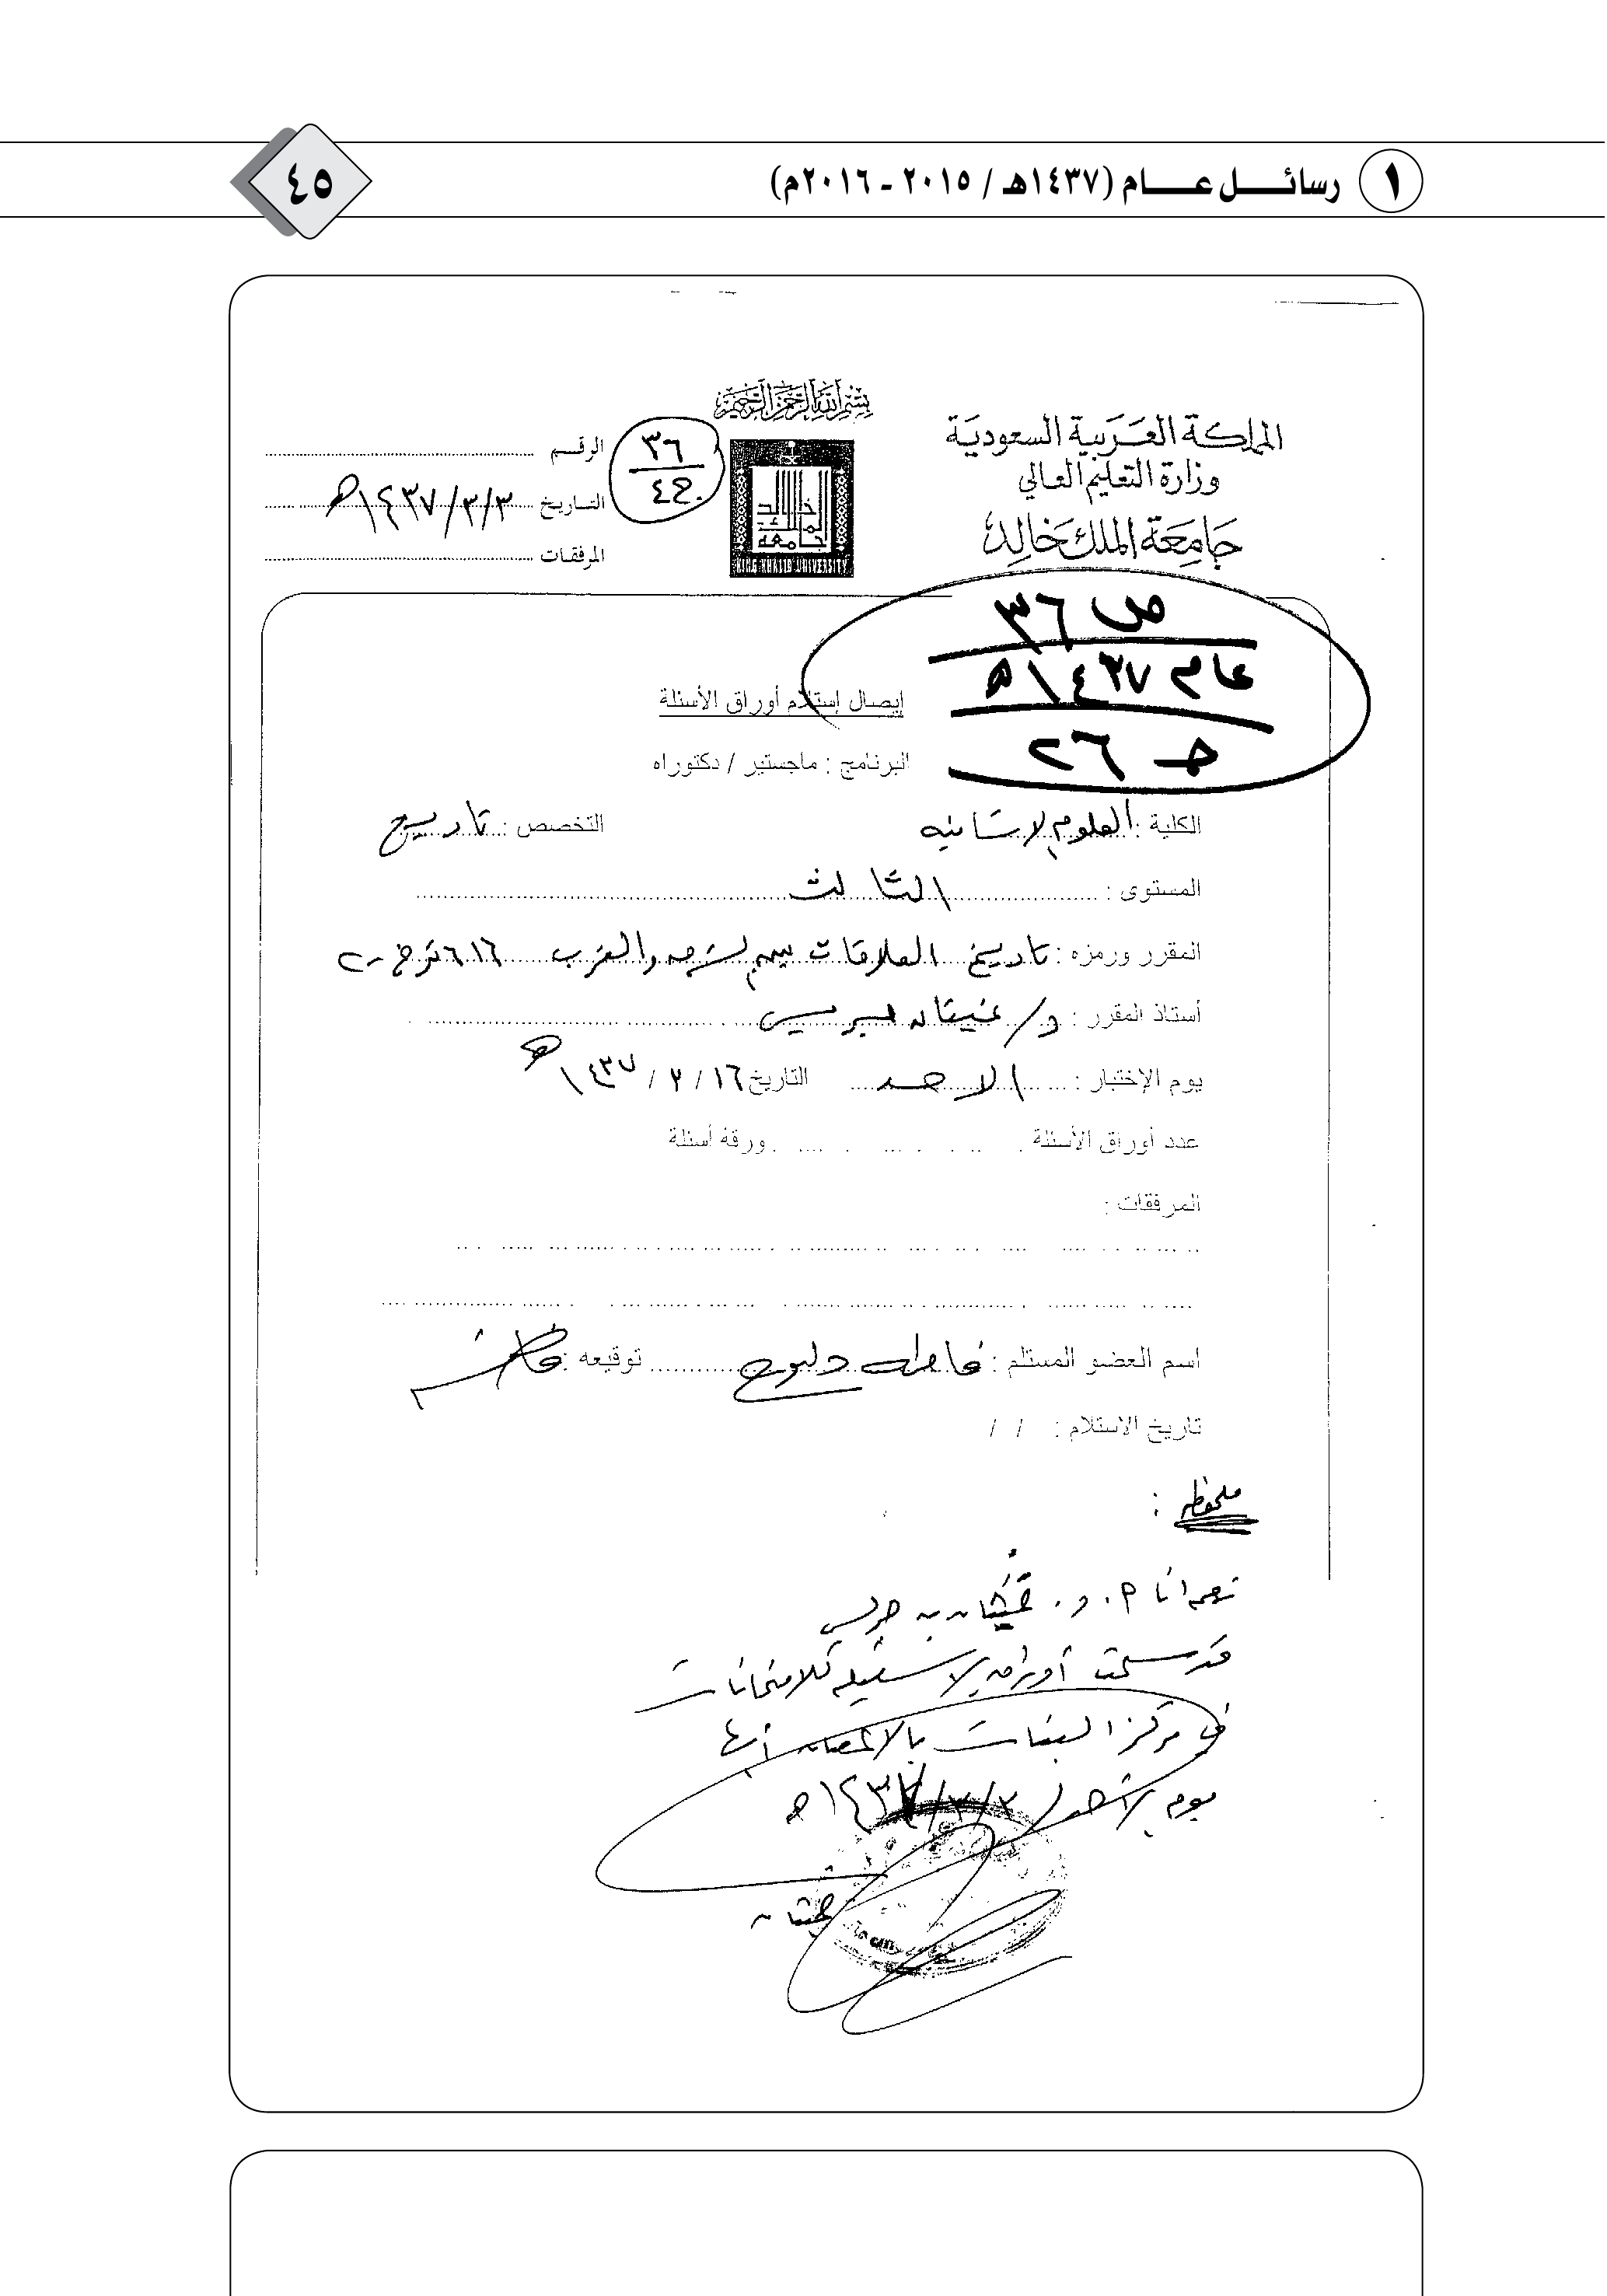 ١ رسائل عام (١٤٣٧هـ / ٢٠١٥ - ٢٠١٦م)
٤٥
بسم الله الرحمن الرحيم
المملكة العربية السعودية
وزارة التعليم العالي
جامعة الملك خالد
KING KHALID UNIVERSITY
٣٦
الرقم
التاريخ ٣/٣/١٤٣٧هـ
المرفقات
ص ٣٦
عام ١٤٣٧هـ
حـ ٢٦
إيصال إستلام أوراق الأسئلة
البرنامج : ماجستير / دكتوراه
الكلية : العلوم الانسانيه التخصص : تاريخ
المستوى : الثالث
المقرر ورمزه : تاريخ العلاقات بين الشرق والغرب ٦١٦ ترخ - ٢
أستاذ المقرر : د/ غيثان جريس
يوم الإختبار : الاحد التاريخ ١٦ / ٣ / ١٤٣٧هـ
عدد أوراق الأسئلة ورقة أسئلة
المرفقات :
اسم العضو المستلم : توقيعه :
تاريخ الاستلام : / /
ملحوظه :
نعم انا أ. د. غيثان بن جريس
قد سلمت أوراق الاسئلة للامتحانات
في مركز البنات بالامتحان أبها
يوم الأحد ٣/٣/١٤٣٧هـ
غيثان